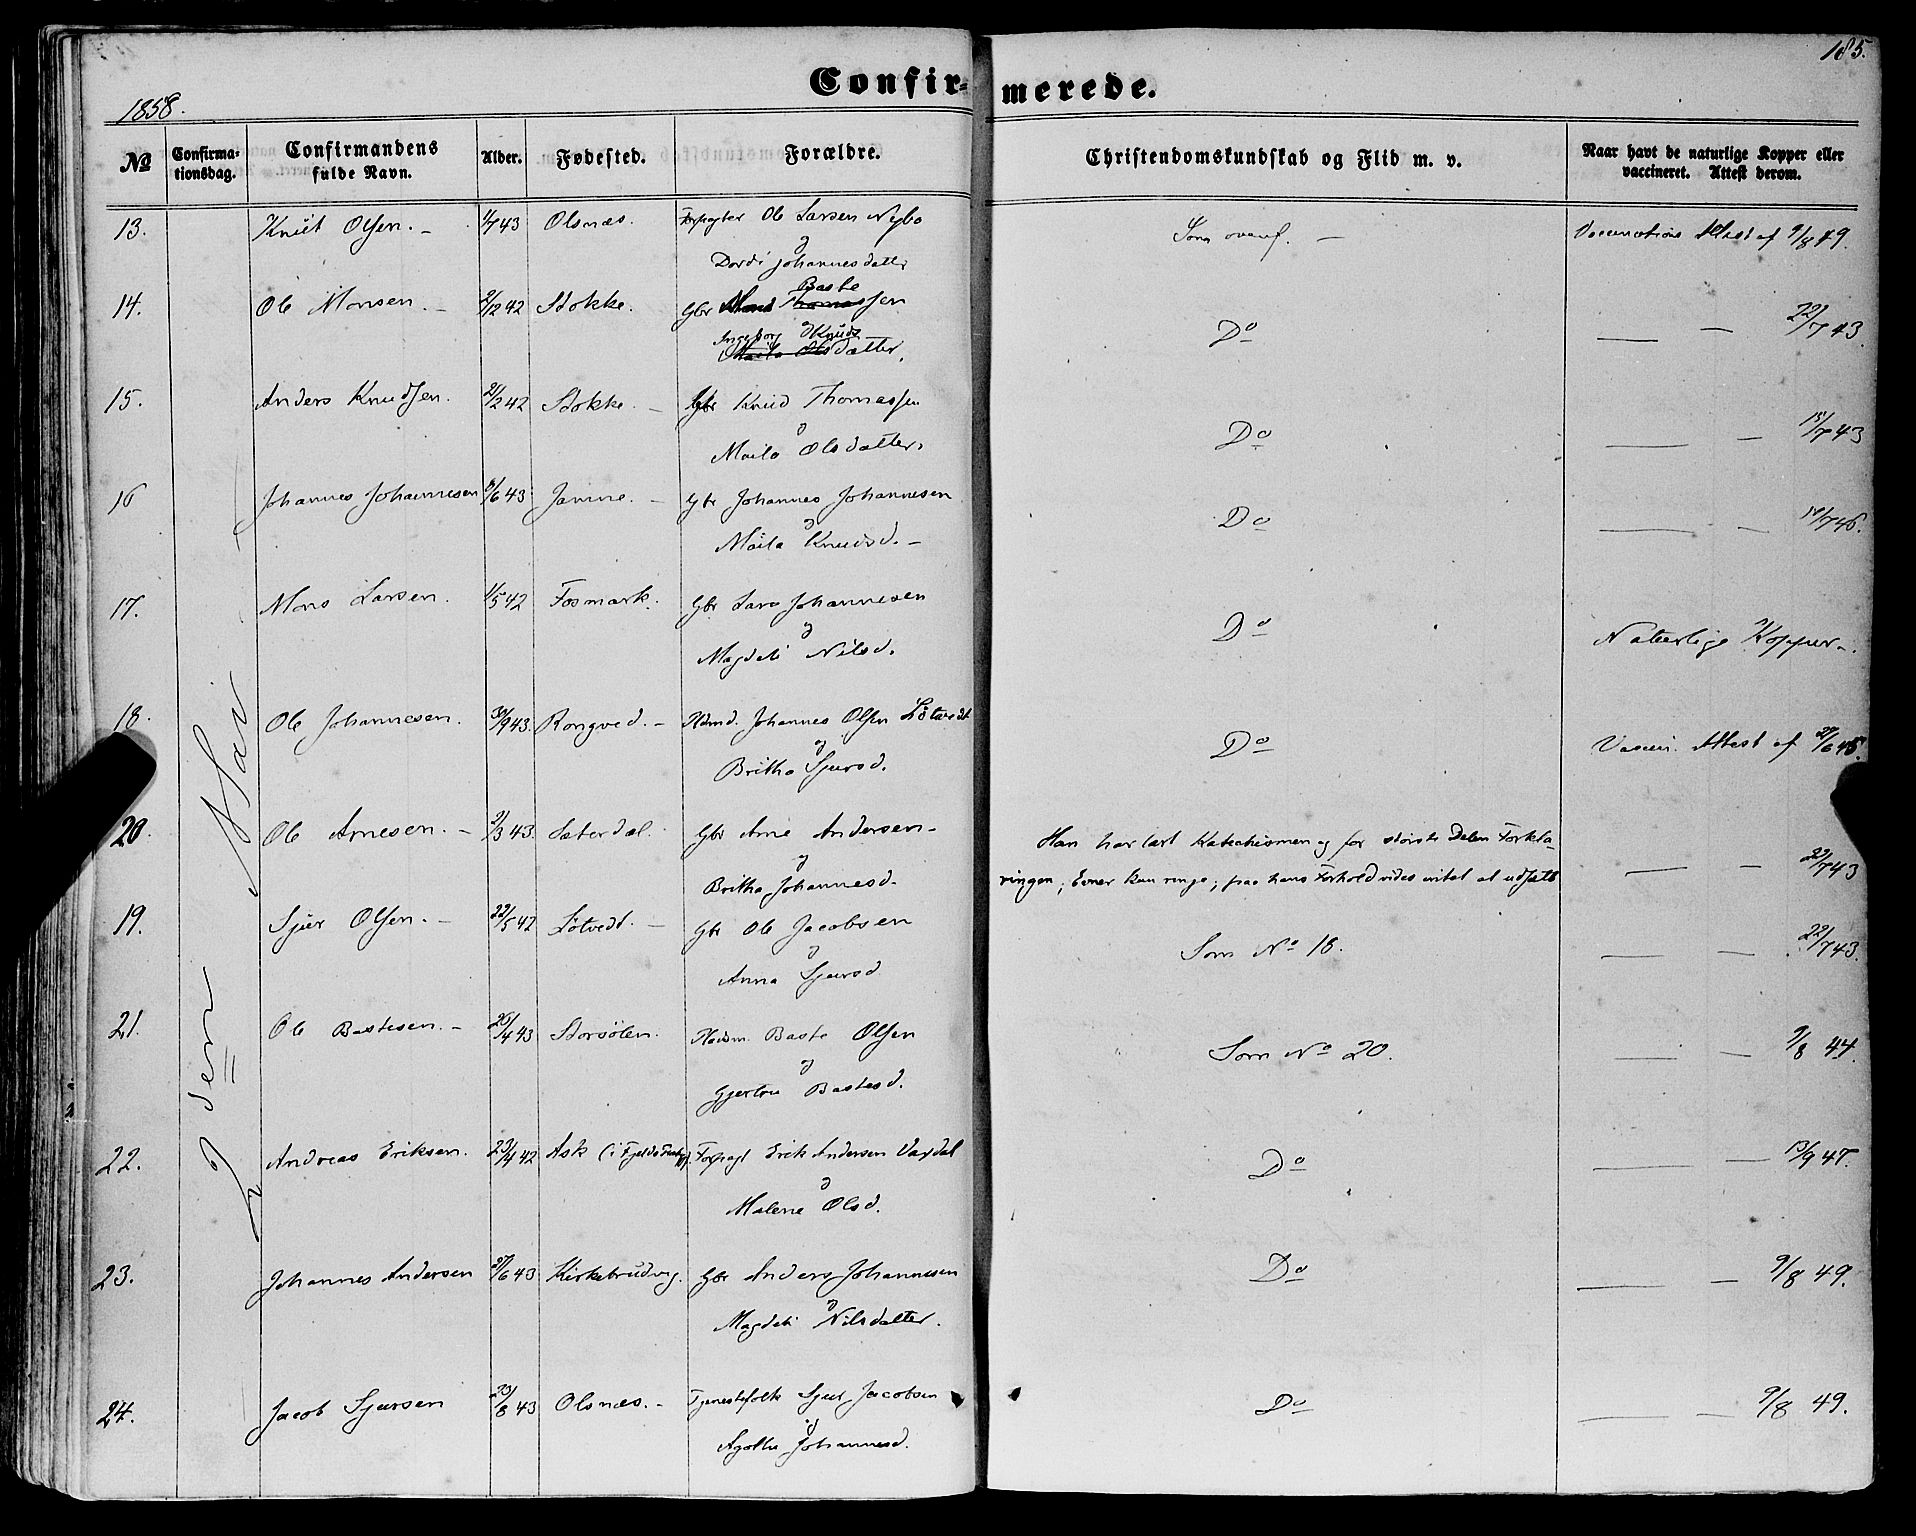 185.
1858.
Confir-merede.
No Confirma-tionsdag. Confirmandens fulde Navn. Alder. Fødested. Forældre. Christendomskundskab og Flid m. v. Naar havt de naturlige Kopper eller vaccineret. Attest derom.
2den Mai
13. Knut Olsen. 1/7 43 Olsnæs. Forpagter Ole Larsen Nybø Som ovenf. Vaccinations Attest af 9/8 49.
og
Dordi Johannesdatter
14. Ole Monsen. 2/12 42 Stokke. Gbr Mons Baste Thomassen Do 22/7 43.
Ingeborg Knuds
Maita Olsdatter.
15. Anders Knudsen. 21/2 42 Stokke. Gbr Knud Thomassen Do 15/7 43
og
Maila Olsdatter.
16 Johannes Johannesen 6/6 43 Jamne. Gbr Johannes Johannesen Do
og
Maila Knudsd.
17. Mons Larsen. 1/5 42 Fosmark. Gbr Lars Johannesen Do Naturlige Kopper.
og
Magdeli Nilsd.
18. Ole Johannesen. 30/9 43. Rongved. Huusmd. Johannes Olsen Løtvedt Do Vaccin. Attest af
og
Britha Sjursd.
20. Ole Arnesen. 2/3 43. Sæterdal. Gbr Arne Andersen Han har lært Katechismen og for største Delen Forkla-
og
Britha Johannesd. ringen; Evner kun ringe; paa hans Forhold vides intet at udsætte 22/7 43
19. Sjur Olsen. 22/5 42 Løtvedt. Gbr Ole Jacobsen Som No 18. 22/7 43.
og
Anna Sjursd
21. Ole Bastesen. 26/4 43 Storsølen. Huusm. Baste Olsen Som No 20. 9/8 44.
og
Gjertru Bastesd.
22. Andreas Eriksen. 23/4 42 Ask Forpagt Erik Andersen Vaagdal Do 13/9 47.
og
Malene Olsd.
23. Johannes Andersen 27/6 43 Kirkebrudvig. Gbr Anders Johannesen Do 9/8 49.
og
Magdeli Nilsdatter.
24. Jacob Sjursen 23/8 43 Olsnæs. Tjenestefolk Sjur Jacobsen Do 9/8 49.
og
Agathe Johannesd.